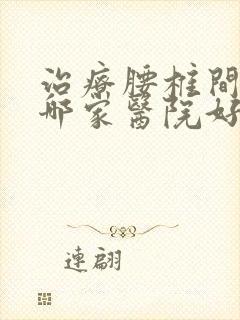 治療腰柱間
哪家醫院好
連翩